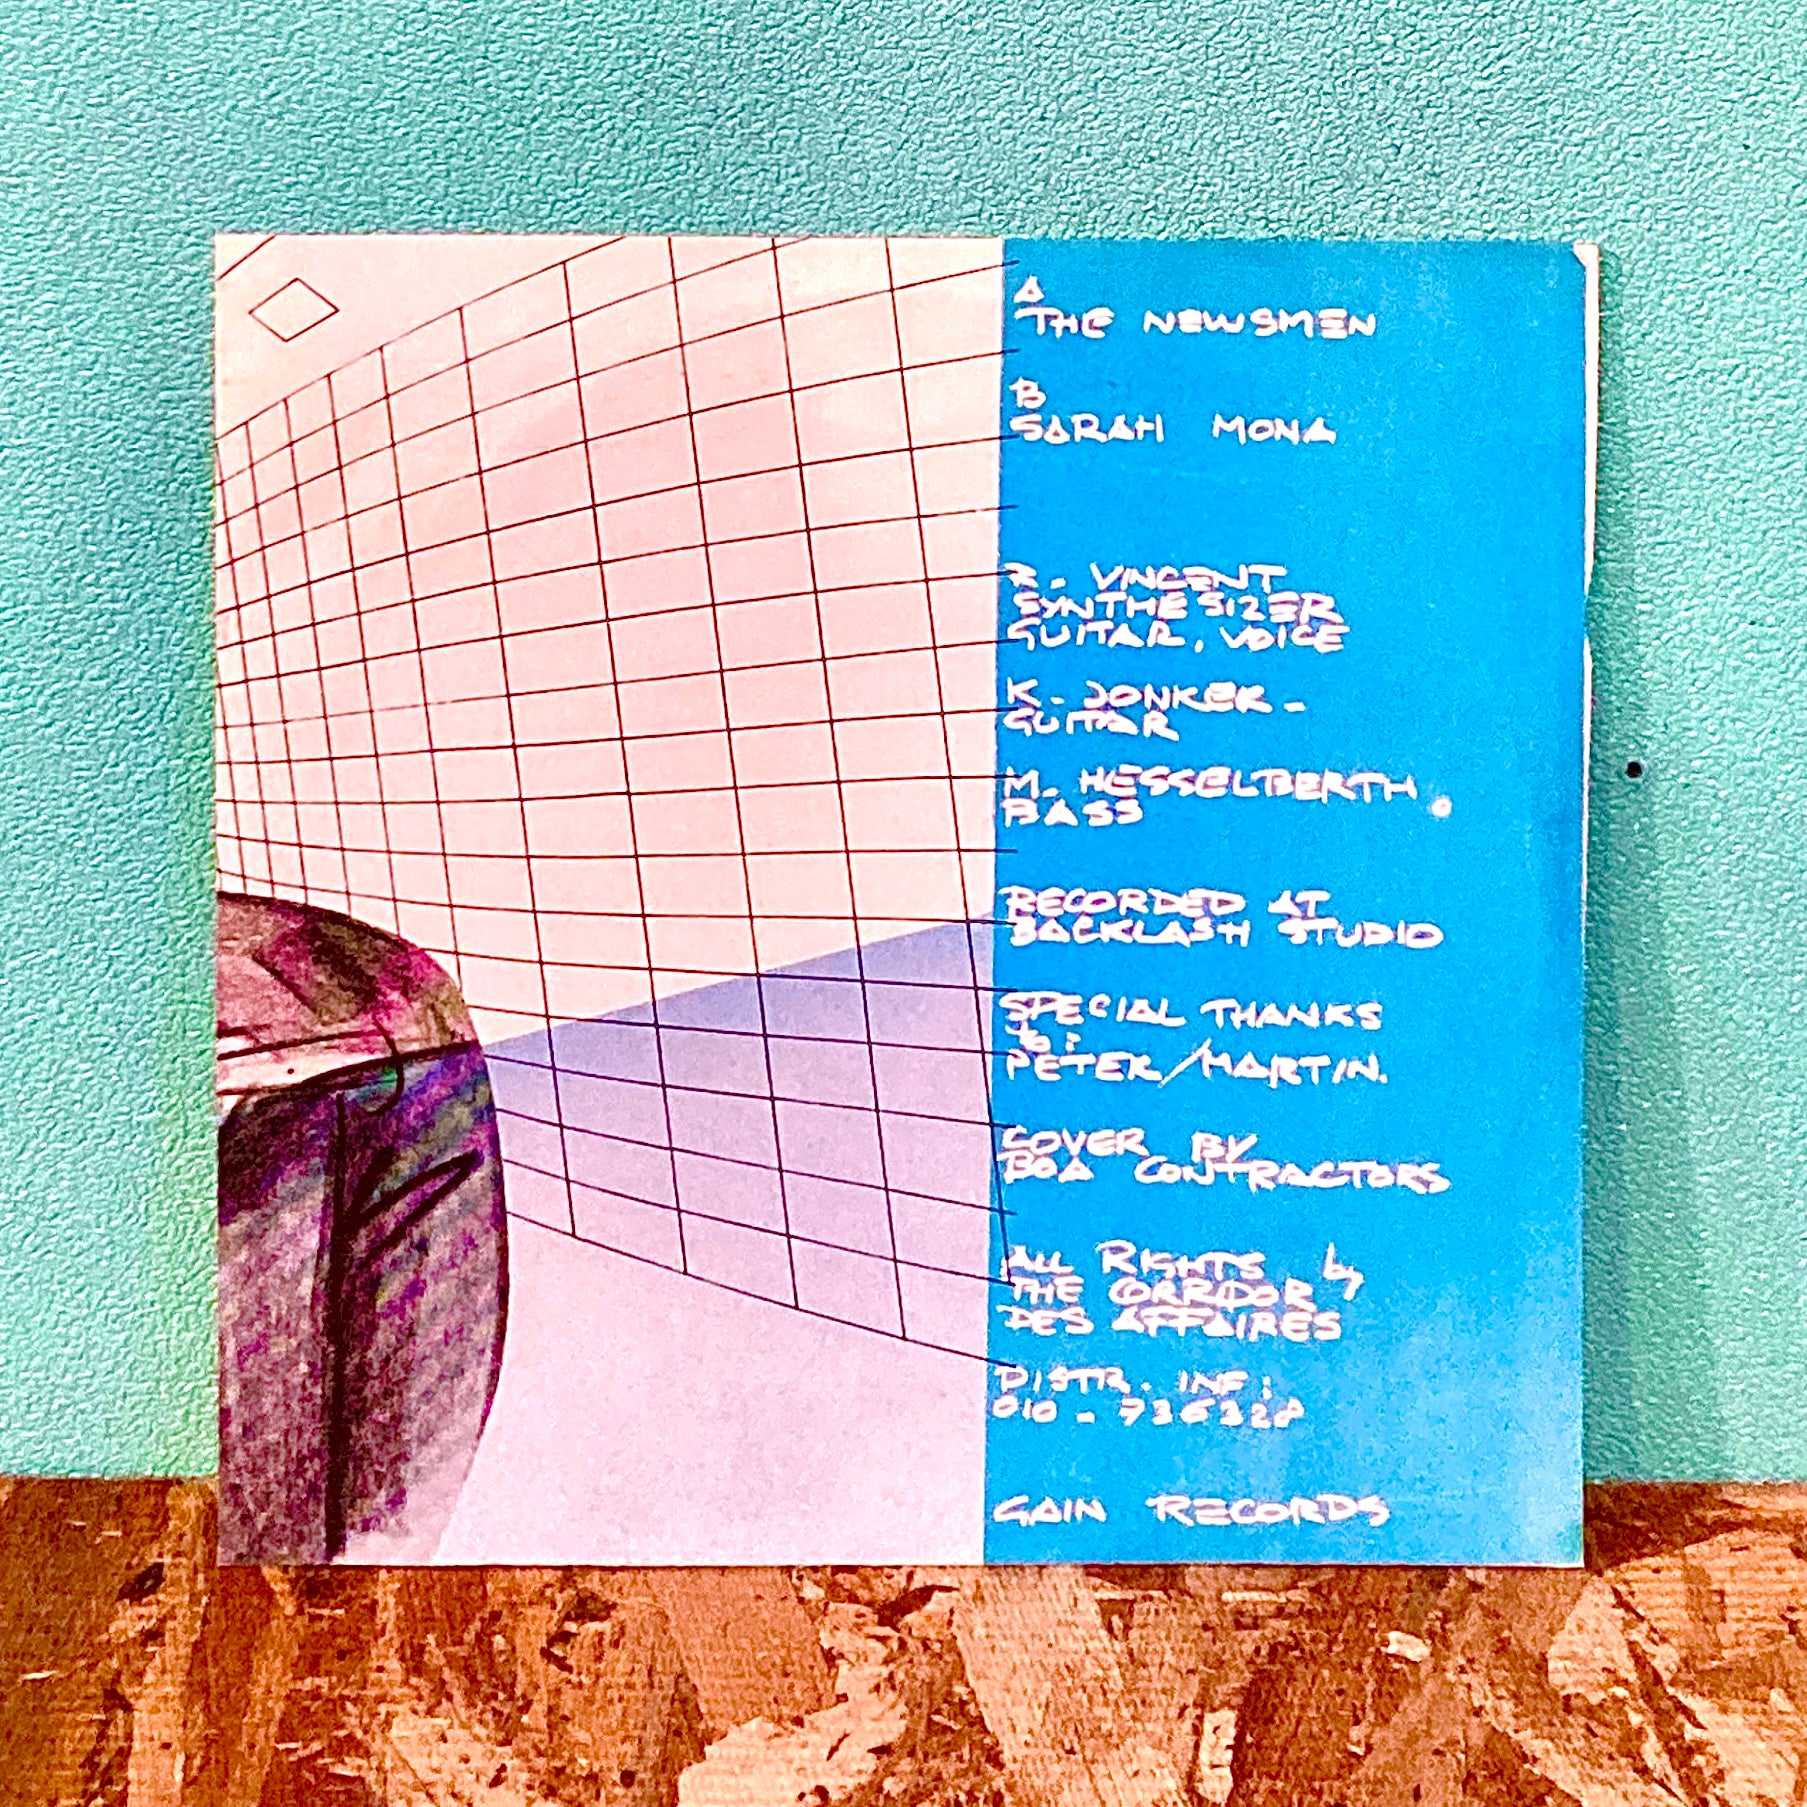 A
THE NEWSMEN
B
SARAH MONA
R. VINCENT
SYNTHESIZER
GUITAR, VOICE
K. JONKER -
GUITAR
M. HESSELBERTH.
BASS
RECORDED AT
BACKLASH STUDIO
SPECIAL THANKS
to:
PETER/MARTIN.
COVER BY
BOA CONTRACTORS
ALL RIGHTS by
THE CORRIDOR
DES AFFAIRES
DISTR. INF:
010 - 736328
GAIN RECORDS